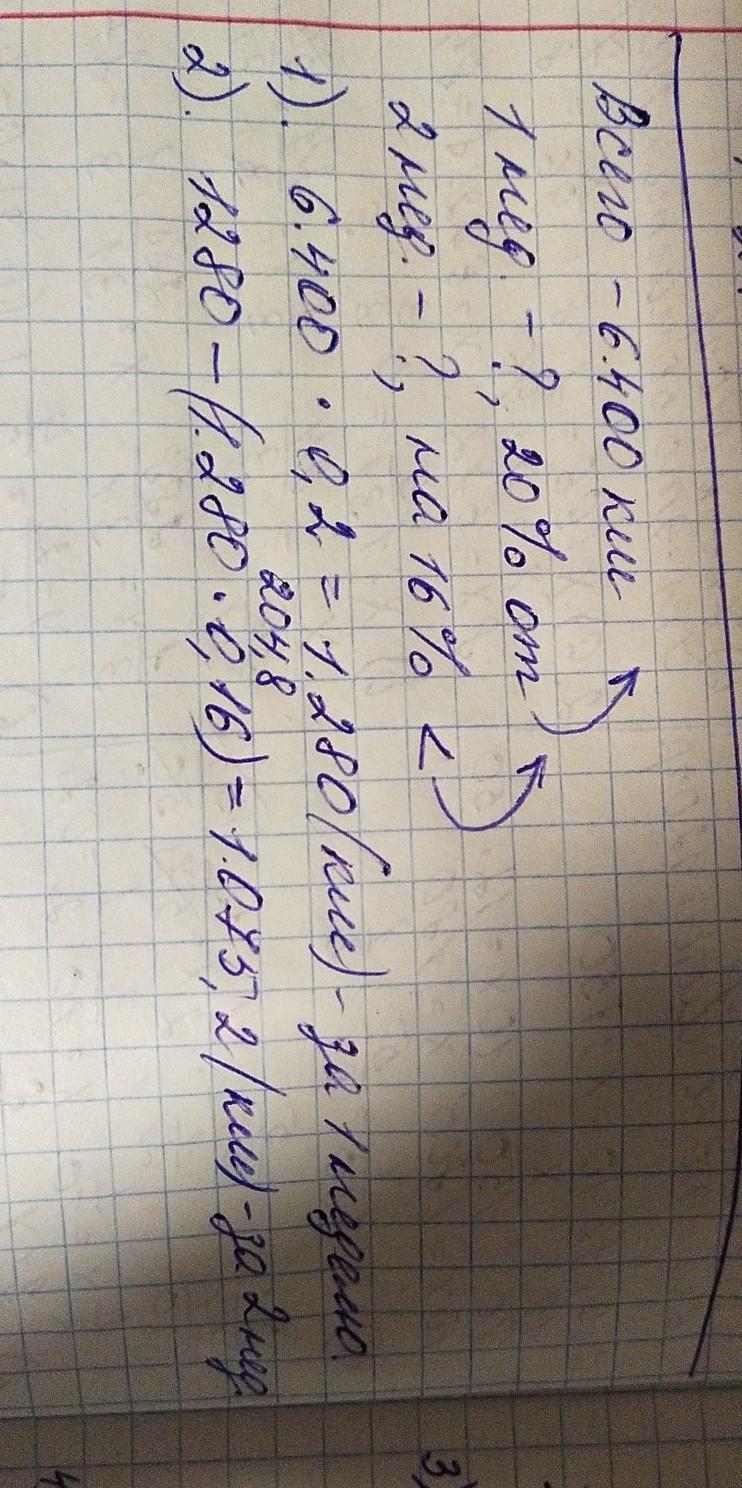 Всего - 6.400 км
1 нед. - ?, 20% от
2 нед. - ?, на 16% <
1). 6.400 · 0,2 = 1.280 (км) - за 1 неделю
204,8
2). 1280 - (1.280 · 0,16) = 1.075,2 (км) - за 2 нед.
3)
4)